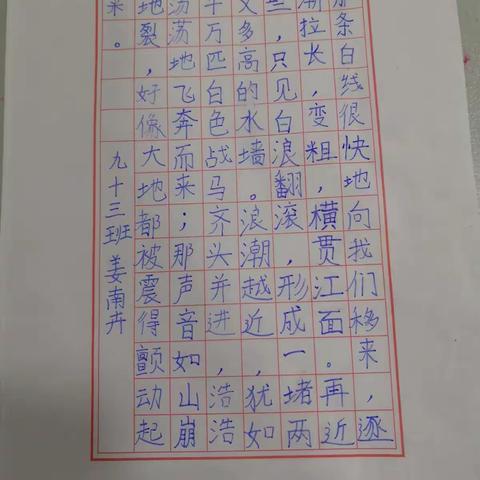 条白线很快地向我们移来，逐
渐拉长，变粗，横贯江面。再近
些，只见白浪翻滚，形成一堵两
丈多高的水墙。浪潮越近，犹如
千万匹白色战马齐头并进，浩浩
荡荡地飞奔而来；那声音如山崩
地裂，好像大地都被震得颤动起
来。
九十三班姜南卉